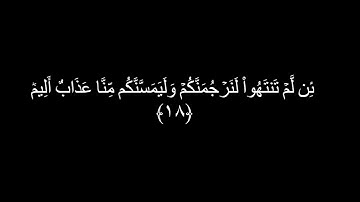 ئِن لَّمۡ تَنتَهُواْ لَنَرۡجُمَنَّكُمۡ وَلَيَمَسَّنَّكُم مِّنَّا عَذَابٌ أَلِيمٞ
﴿١٨﴾